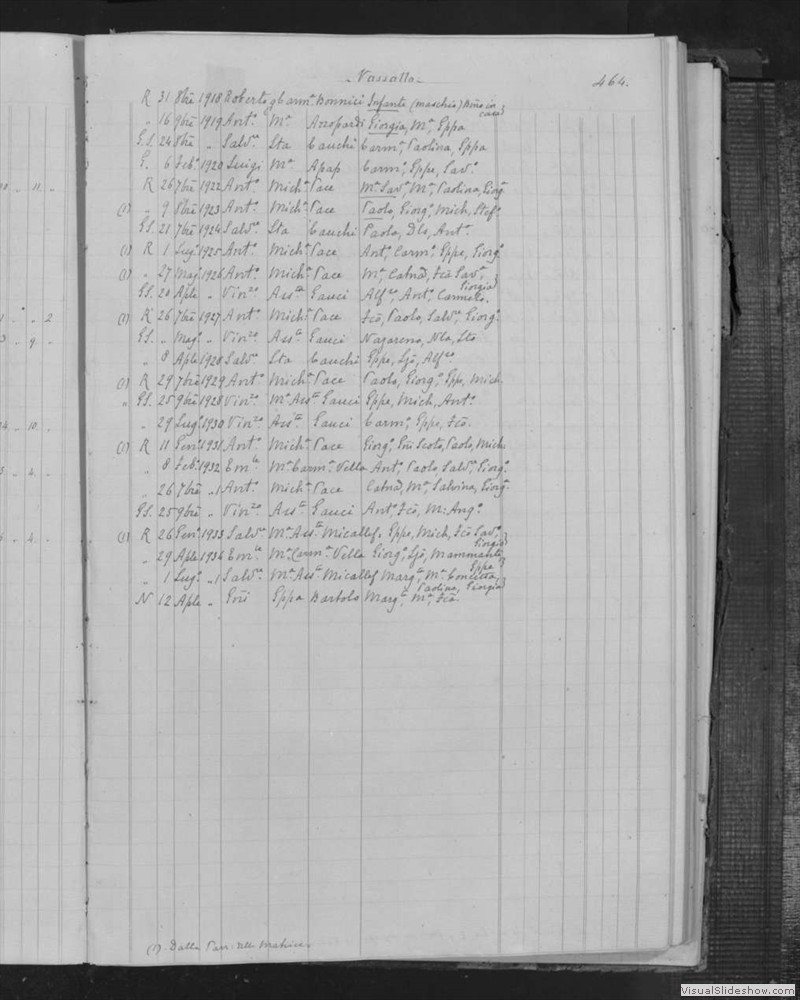 Vassallo
464.
R 31 8bre 1918 Roberto Carmª Bonnici Infante (maschio) Bino in casa
" 16 9bre 1919 Antº Mª Azzopardi Giorgia, Mª, Eppa
G.S. 24 8bre " Salvre Sta Cauchi Carmª, Paolina, Eppa
G. 6 Febº 1920 Luigi Mª Apap Carmº, Eppe, Savº
R 26 7bre 1922 Antº Michª Pace Mª Savª, Mª, Paolina, Giorgª
(1) " 9 8bre 1923 Antº Michª Pace Paolo, Giorgº, Mich, Stefº
GS. 21 7bre 1924 Salvre Sta Cauchi Paolo, Antº
(1) R 1 Lugº 1925 Antº Michª Pace Antº, Carmº, Eppe, Giorgº
(1) " 27 Magº 1926 Antº Michª Pace Mª, Catna, Fca, Savª, Giorgia
GS. 20 Aple " Vinzo Assta Gauci Alfeo, Antº, Carmelo.
(1) R 26 7bre 1927 Antº Michª Pace Fco, Paolo, Salvre, Giorgº
GS. " Magº " Vinzo Assta Gauci Nazareno,
" 8 Aple 1928 Salvre Sta Cauchi Eppe, Alfeo
(1) R 29 7bre 1929 Antº Michª Pace Paolo, Giorgº, Eppe, Mich.
" GS. 25 9bre 1928 Vinzo Mª Assta Gauci Eppe, Mich, Antº
" 29 Lugº 1930 Vinzo Assta Gauci Carmº, Eppe, Fco.
(1) R 11 Genº 1931 Antº Michª Pace Giorgº, Gni Scoto, Paolo, Mich.
" 8 Febº 1932 Emle Mª Carmª Vella Antº, Paolo, Salvre, Giorgº
" 26 7bre " Antº Michª Pace Catna, Mª, Salvina, Giorgª
GS. 25 9bre " Vinzo Assta Gauci Antª, Fca, M: Angª
(1) R 26 Genº 1933 Salvre Mª Assta Micallef Eppe, Mich, Fco, Savº, Giorgio
" 29 Aple 1934 Emle Mª Carmª Vella Giorgº, Eppe
" 1 Lugº " Salvre Mª Assta Micallef Margta, Mª Concetta, Paolina, Giorgia
N 12 Aple " Gni Eppa Bartolo Margta, Mª, Fca.
(1). Dalla Parr: Matrice.
VisualSlideshow.com